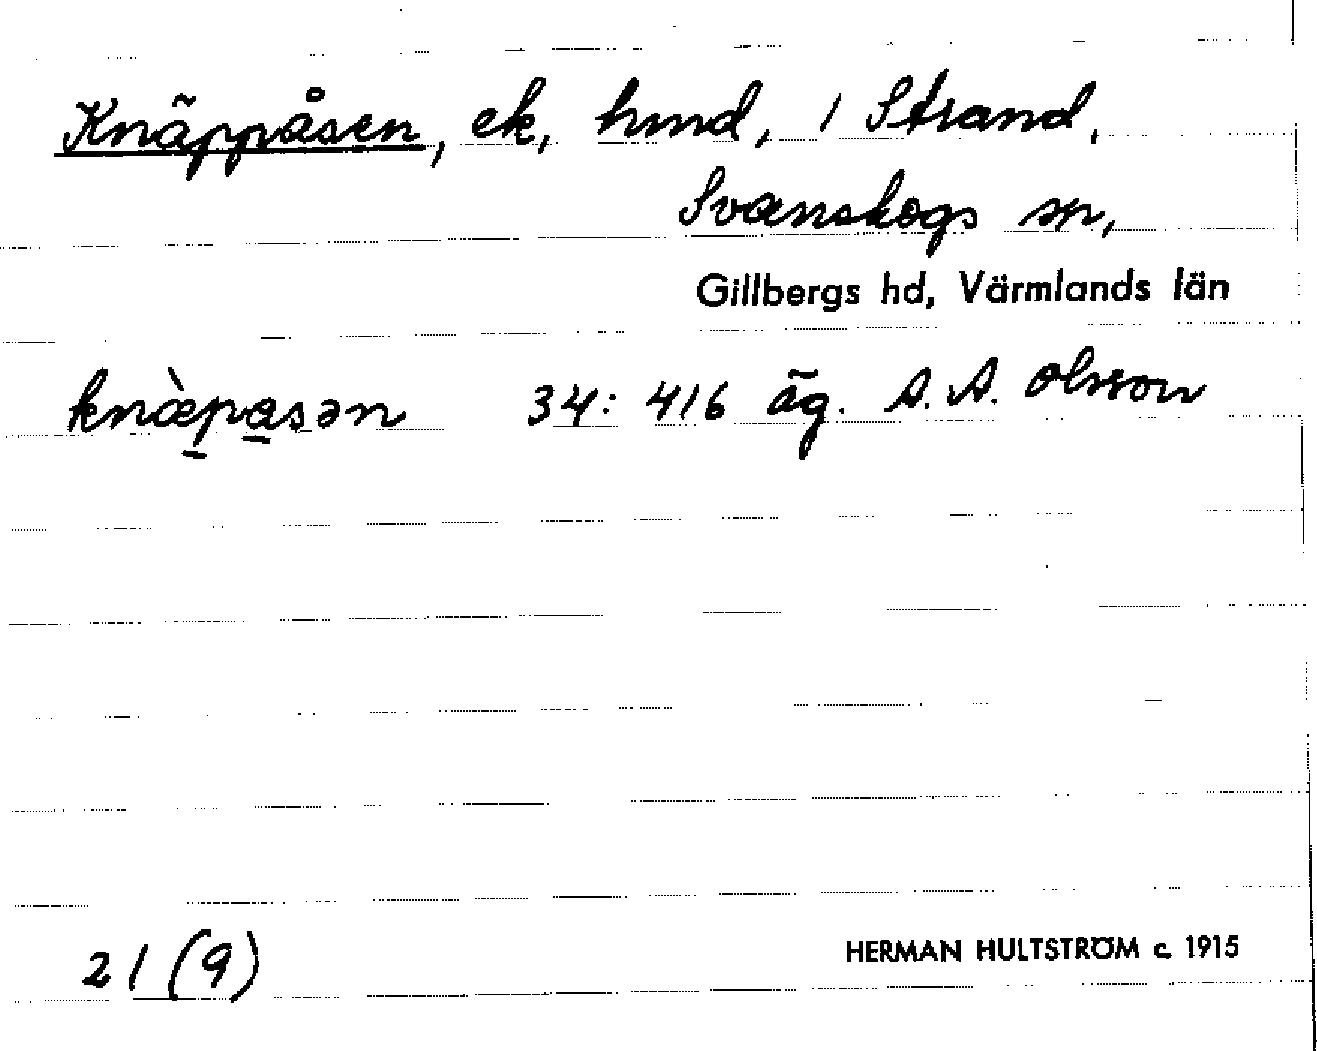 Knäppåsen, ek, hmd, 1 Strand,
Svanskogs sn,
Gillbergs hd, Värmlands län
knæ̀pa̱sən 34: 416 äg. A. A. Olsson
21 (9)
HERMAN HULTSTRÖM c. 1915